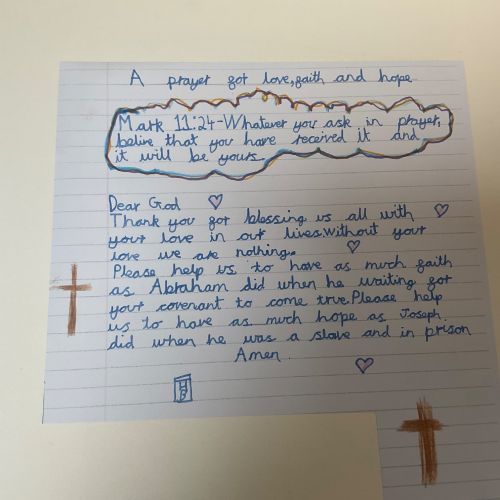 A prayer for love, faith and hope
Mark 11:24-Whatever you ask in prayer,
belive that you have received it and
it will be yours.
Dear God
Thank you for blessing us all with
your love in our lives.Without your
love we are nothing.
Please help us to have as much faith
as Abraham did when he waiting for
your covenant to come true.Please help
us to have as much hope as Joseph
did when he was a slave and in prison
Amen
HB